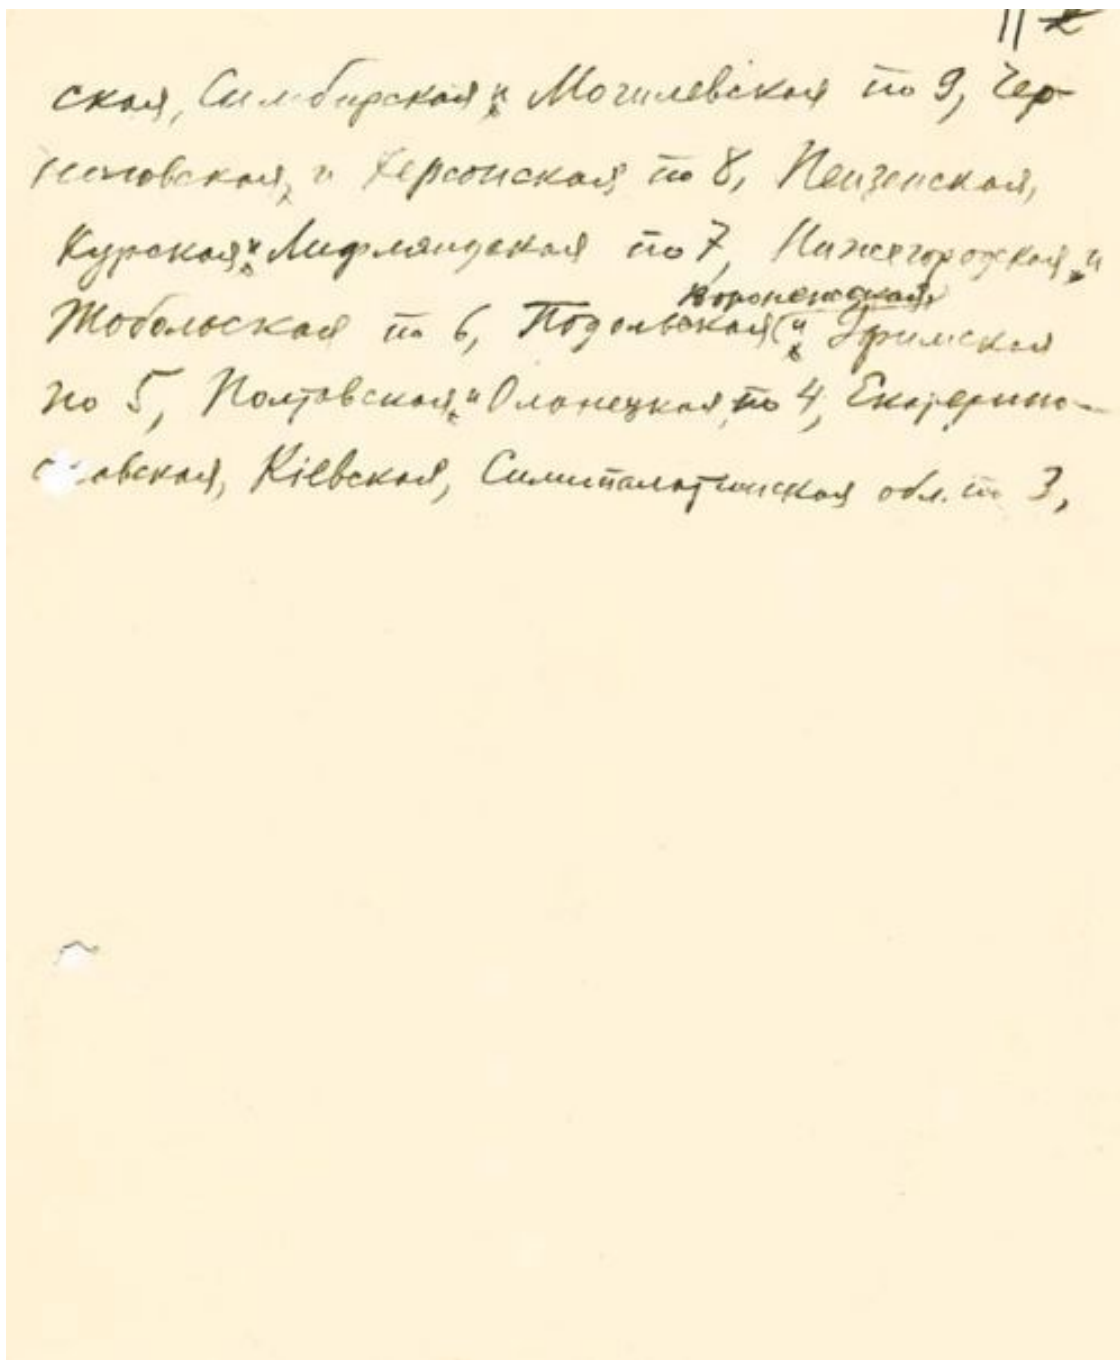 11
ская, Симбирская и Могилевская по 9, Чер-
ниговская, и Херсонская по 8, Пензенская,
Курская и Лифляндская по 7, Нижегородская и
Воронежская,
Тобольская по 6, Подольская и Уфимская
по 5, Полтавская и Олонецкая по 4, Екатерино-
славская, Кіевская, Симипалатинская обл. по 3,